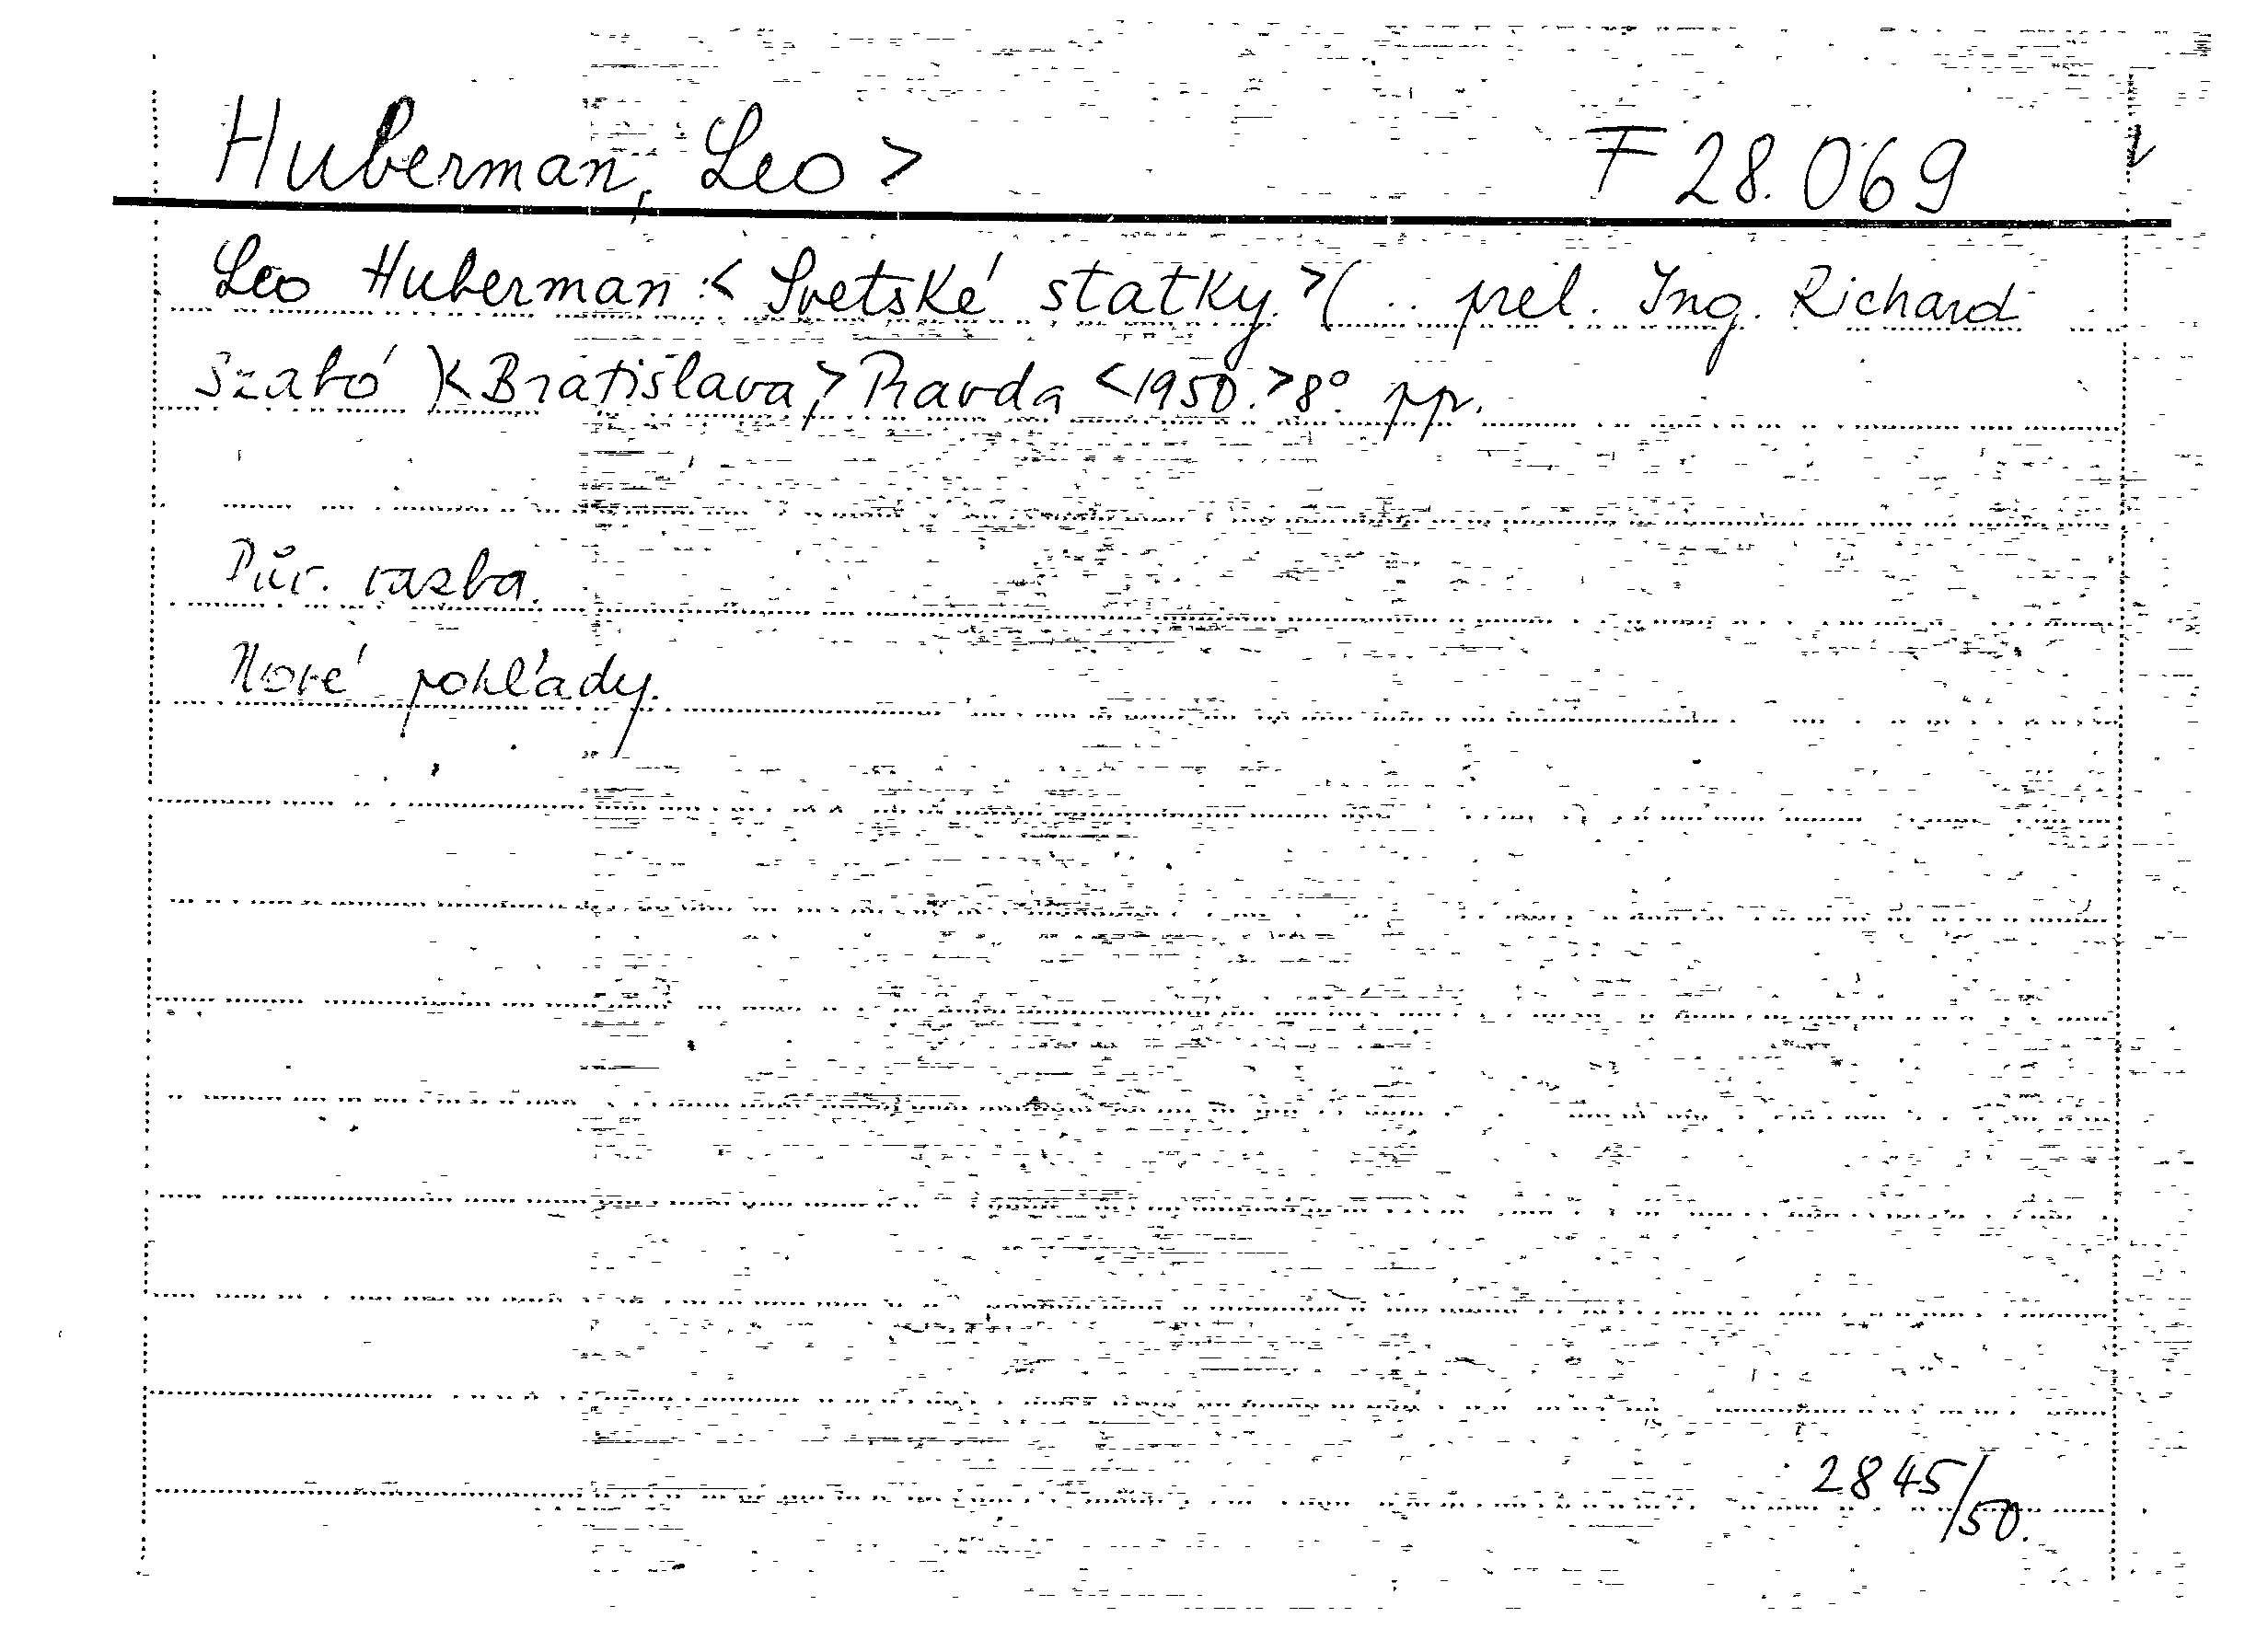 Huberman, Leo > F 28.069
Leo Huberman: < Svetské statky. > ( .. prel. Ing. Richard
Szabó ) < Bratislava, > Pravda < 1950. > 8°. pp.
Pův. vazba.
Nové pohľady.
2845/50.